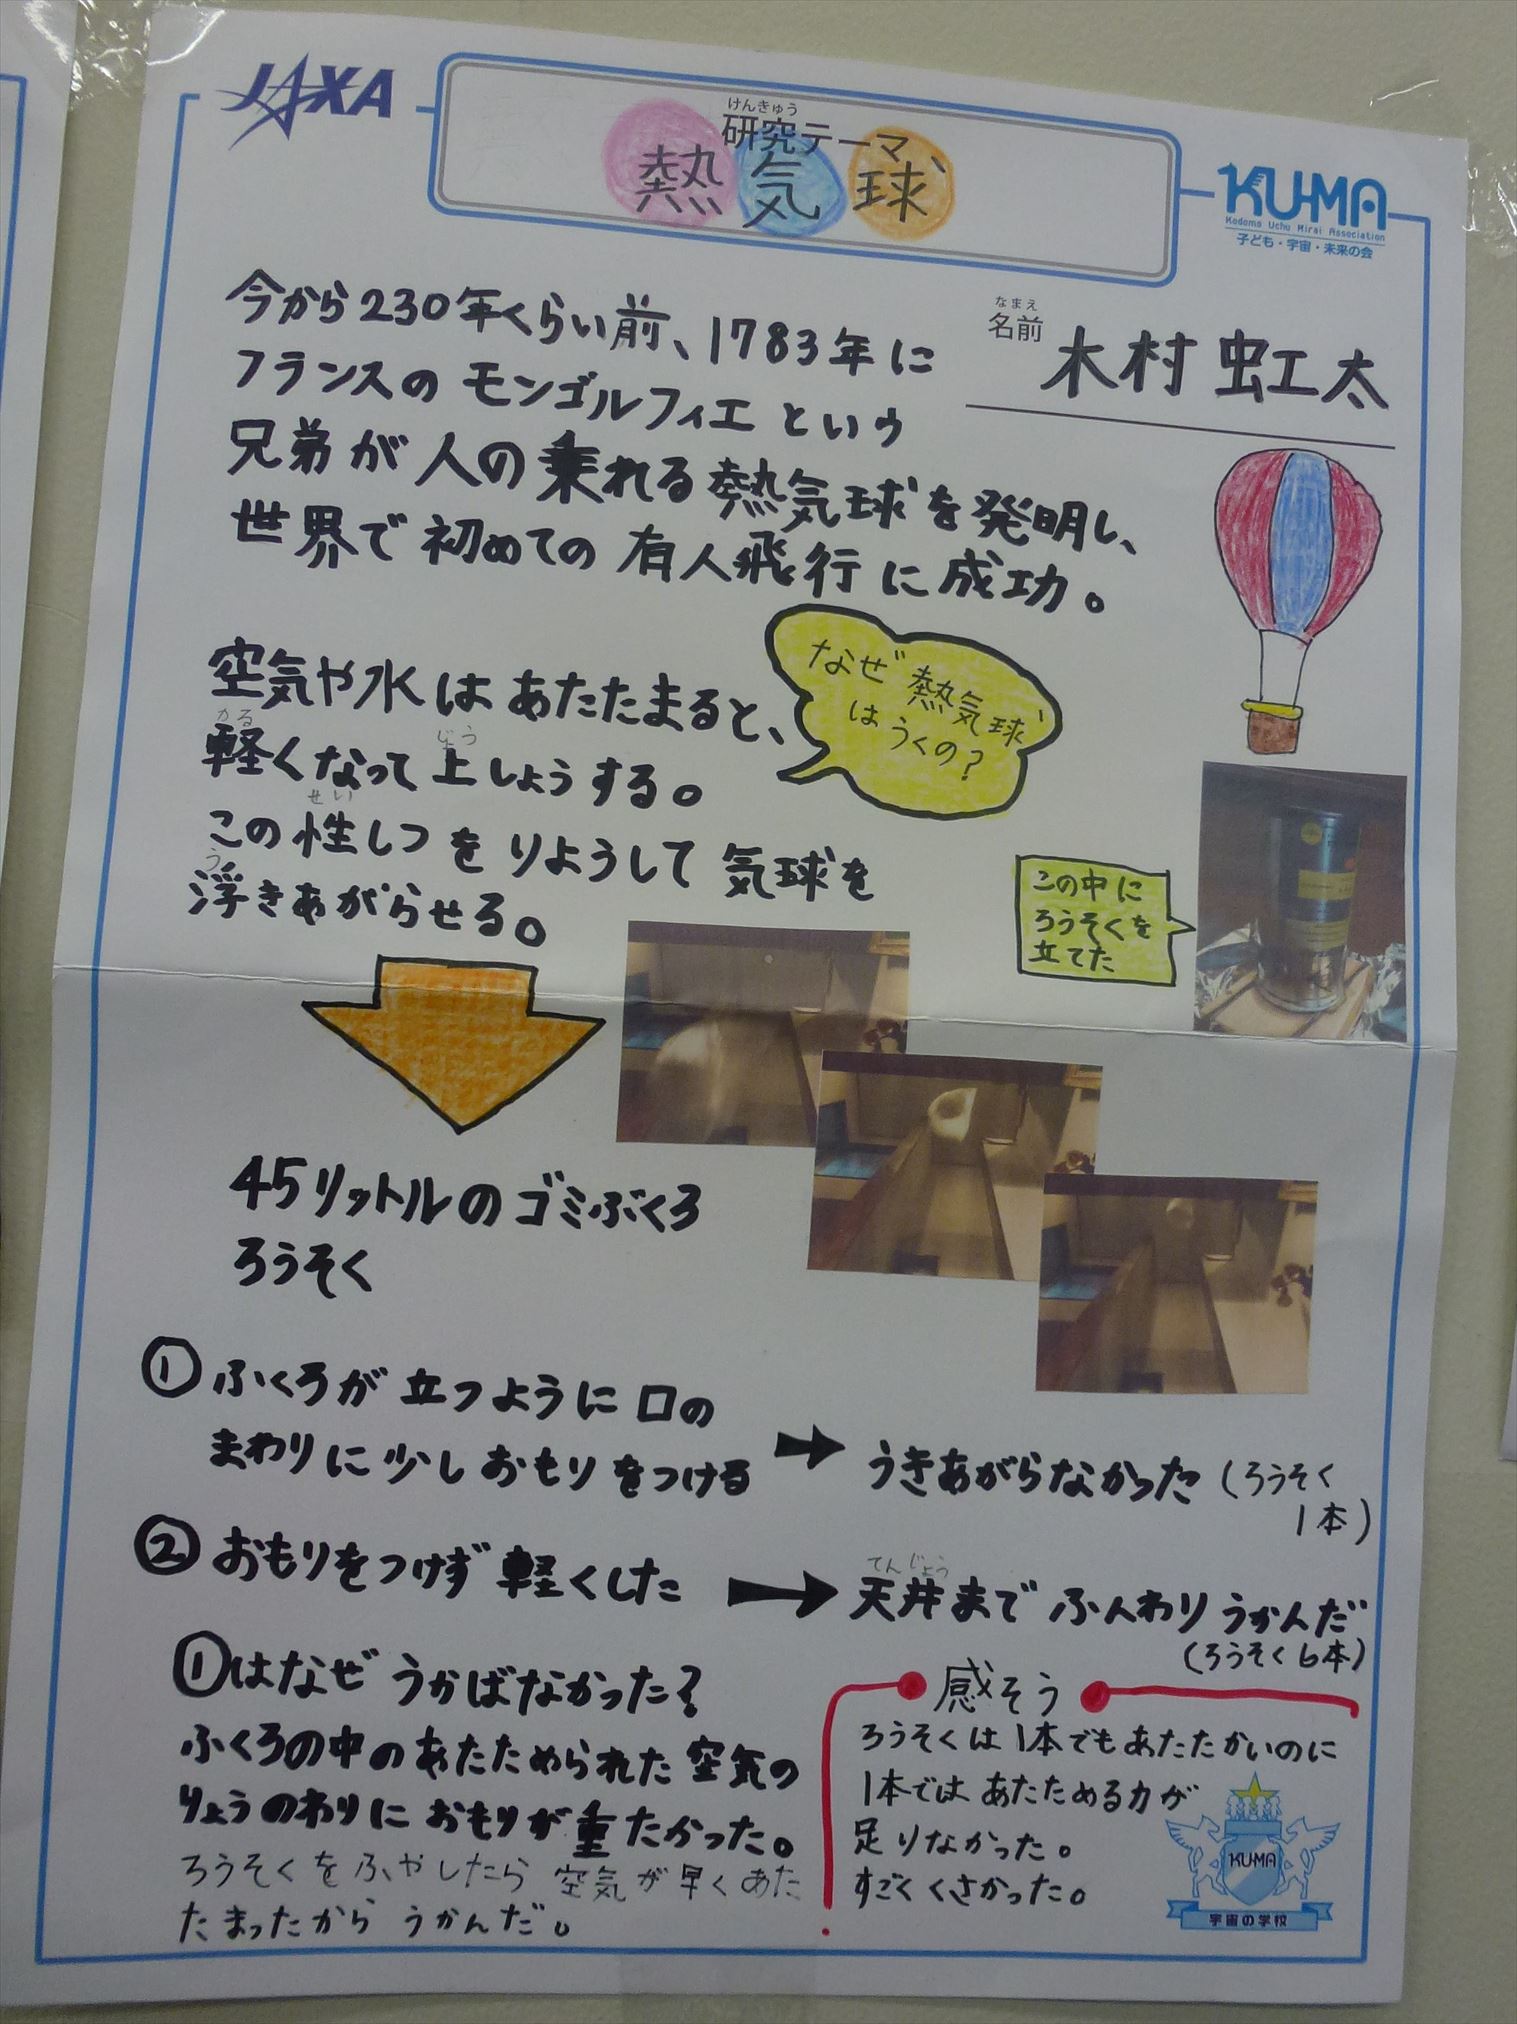 JAXA
けんきゅう
研究テーマ
熱気球
KU-MA
Kodomo Uchu Mirai Association
子ども・宇宙・未来の会
なまえ
名前 木村 虹太
今から230年くらい前、1783年に
フランスの モンゴルフィエ という
兄弟が 人の 乗れる 熱気球を発明し、
世界で 初めての 有人飛行 に成功。
なぜ 熱気球
はうくの?
空気や水 は あたたまると、
かる じょう
軽くなって 上しょうする。
せい
この 性しつ を りようして 気球を
う
浮きあがらせる。
この中に
ろうそくを
立てた
45リットルの ゴミぶくろ
ろうそく
① ふくろが 立つように 口の
まわりに 少し おもりをつける → うきあがらなかった (ろうそく
1本)
② おもりをつけず 軽くした → 天井まで ふんわり うかんだ
てんじょう
(ろうそく6本)
①はなぜ うかばなかった?
ふくろの中の あたためられた 空気の
りょうのわりに おもりが重たかった。
ろうそくを ふやしたら 空気が早くあた
たまったから うかんだ。
感そう
ろうそくは 1本でも あたたかいのに
1本では あたためる力が
足りなかった。
すごくくさかった。
KU-MA
宇宙の学校